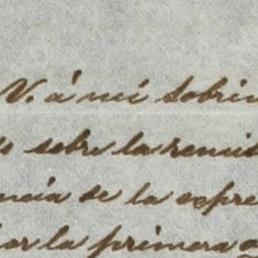 V. á mi sobrin
sobre la remis
ncia de la expre
or la primera